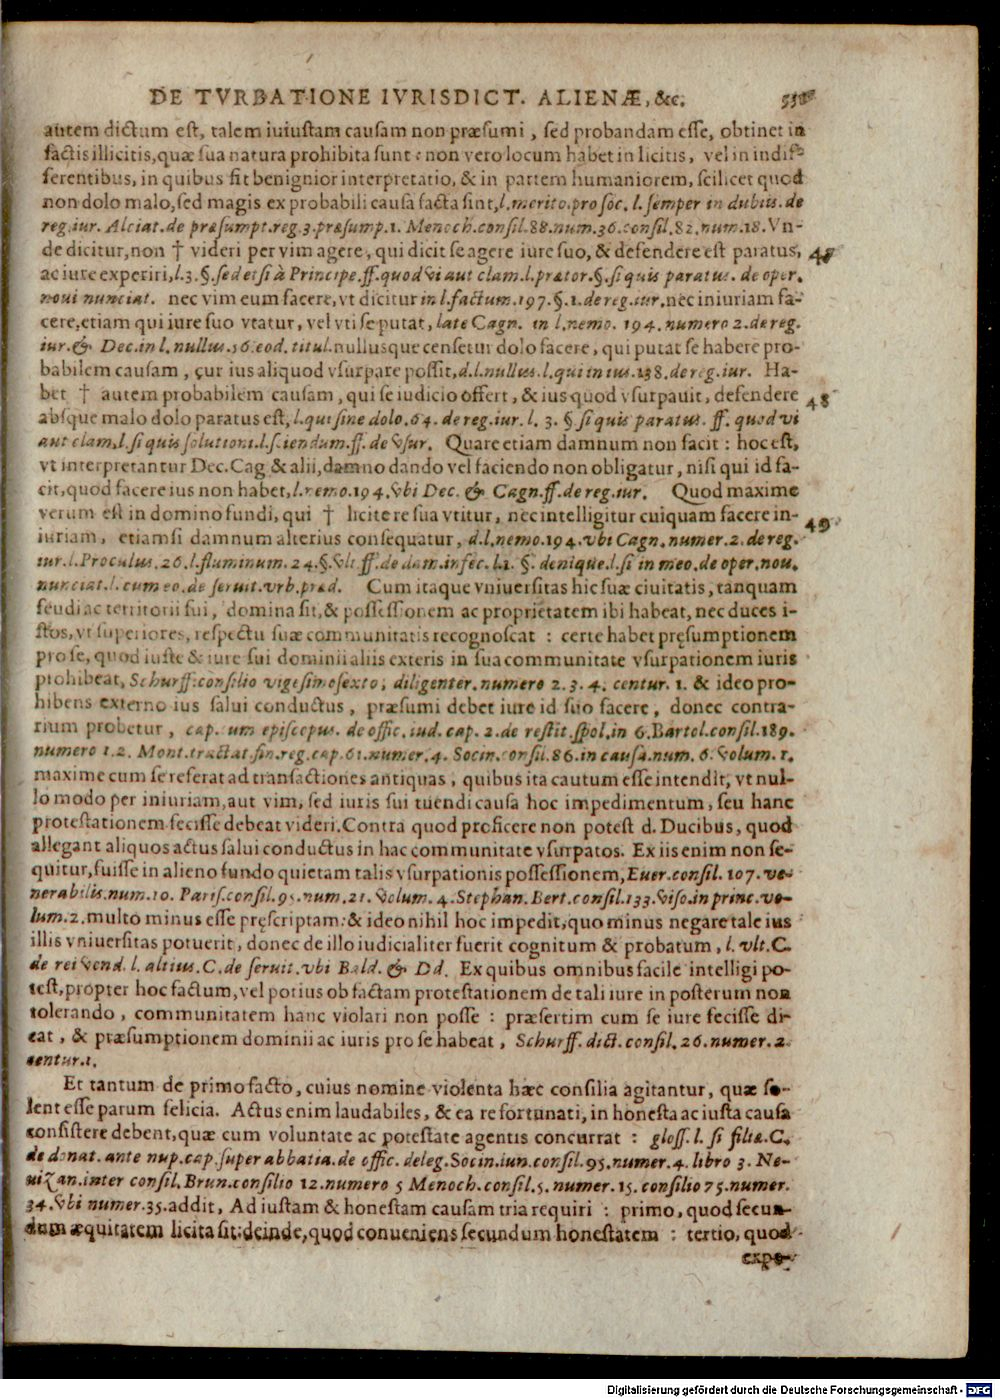 DE TVRBATIONE IVRISDICT. ALIENÆ, &c.
autem dictum est, talem iniustam causam non præsumi, sed probandam esse, obtinet in
factis illicitis, quæ sua natura prohibita sunt: non vero locum habet in licitis, vel in indif-
ferentibus, in quibus fit benignior interpretatio, & in partem humaniorem, scilicet quod
non dolo malo, sed magis ex probabili causa facta sint, l. merito. pro soc. l. semper in dubiis. de
reg. iur. Alciat. de præsumpt. reg. 3. præsump. 1. Menoch. consil. 88. num. 36. consil. 82. num. 18. Vn-
de dicitur, non † videri per vim agere, qui dicit se agere iure suo, & defendere est paratus, 47
ac iure experiri, l. 3. §. sed et si à Principe. ff. quod vi aut clam. l. prætor. §. si quis paratus. de oper.
noui nunciat. nec vim eum facere, vt dicitur in l. factum. 197. §. 1. de reg. iur. nec iniuriam fa-
cere, etiam qui iure suo vtatur, vel vti se putat, late Cagn. in l. nemo. 194. numero 2. de reg.
iur. & Dec. in l. nullus. 56. eod. titul. nullusque censetur dolo facere, qui putat se habere pro-
babilem causam, cur ius aliquod vsurpare possit, d. l. nullus. l. qui in ius. 138. de reg. iur. Ha-
bet † autem probabilem causam, qui se iudicio offert, & ius quod vsurpauit, defendere 48
absque malo dolo paratus est, l. qui sine dolo. 64. de reg. iur. l. 3. § si quis paratus. ff. quod vi
aut clam, l. si quis solutioni. l. sciendum. ff. de vsur. Quare etiam damnum non facit: hoc est,
vt interpretantur Dec. Cag & alii, damno dando vel faciendo non obligatur, nisi qui id fa-
cit, quod facere ius non habet, l. nemo. 194. vbi Dec. & Cagn. ff. de reg. iur. Quod maxime
verum est in domino fundi, qui † licite re sua vtitur, nec intelligitur cuiquam facere in- 49
iuriam, etiamsi damnum alterius consequatur, d. l. nemo. 194. vbi Cagn. numer. 2. de reg.
iur. l. Proculus. 26. l. fluminum. 24. §. vlt. ff. de dam. infec. l. 1. §. denique. l. si in meo. de oper. nou.
nunciat. l. cum eo. de seruit. vrb. præd. Cum itaque vniuersitas hic suæ ciuitatis, tanquam
feudi ac territorii sui, domina sit, & possessionem ac proprietatem ibi habeat, nec duces i-
stos, vt superiores, respectu suæ communitatis recognoscat: certe habet pręsumptionem
pro se, quod iuste & iure sui dominii aliis exteris in sua communitate vsurpationem iuris
prohibeat, Schurff. consilio vigesimosexto, diligenter. numero 2. 3. 4. centur. 1. & ideo pro-
hibens externo ius salui conductus, præsumi debet iure id suo facere, donec contra-
rium probetur, cap. cum episcopus. de offic. iud. cap. 2. de restit. spol. in 6. Bartol. consil. 189.
numero 1. 2. Mont. tractat. fin. reg. cap. 61. numer. 4. Socin. consil. 86. in causa. num. 6. volum. 1.
maxime cum se referat ad transactiones antiquas, quibus ita cautum esse intendit, vt nul-
lo modo per iniuriam, aut vim, sed iuris sui tuendi causa hoc impedimentum, seu hanc
protestationem fecisse debeat videri. Contra quod proficere non potest d. Ducibus, quod
allegant aliquos actus salui conductus in hac communitate vsurpatos. Ex iis enim non se-
quitur, fuisse in alieno fundo quietam talis vsurpationis possessionem, Euer. consil. 107. ve-
nerabilis. num. 10. Paris. consil. 95. num. 21. volum. 4. Stephan. Bert. consil. 133. viso. in princ. vo-
lum. 2. multo minus esse pręscriptam: & ideo nihil hoc impedit, quo minus negare tale ius
illis vniuersitas potuerit, donec de illo iudicialiter fuerit cognitum & probatum, l. vlt. C.
de rei vend. l. altius. C. de seruit. vbi Bald. & Dd. Ex quibus omnibus facile intelligi po-
test, propter hoc factum, vel potius ob factam protestationem de tali iure in posterum non
tolerando, communitatem hanc violari non posse: præsertim cum se iure fecisse di-
cat, & præsumptionem dominii ac iuris pro se habeat, Schurff. dict. consil. 26. numer. 2.
centur. 1.
Et tantum de primo facto, cuius nomine violenta hæc consilia agitantur, quæ so-
lent esse parum felicia. Actus enim laudabiles, & ea re fortunati, in honesta ac iusta causa
consistere debent, quæ cum voluntate ac potestate agentis concurrat: gloss. l. si filiæ. C.
de donat. ante nup. cap. super abbatia. de offic. deleg. Socin. iun. consil. 95. numer. 4. libro 3. Ne-
uizan. inter consil. Brun. consilio 12. numero 5 Menoch. consil. 5. numer. 15. consilio 75. numer.
34. vbi numer. 35. addit, Ad iustam & honestam causam tria requiri: primo, quod secun-
dum æquitatem licita sit: deinde, quod conueniens secundum honestatem: tertio, quod
expe-
Digitalisierung gefördert durch die Deutsche Forschungsgemeinschaft - DFG